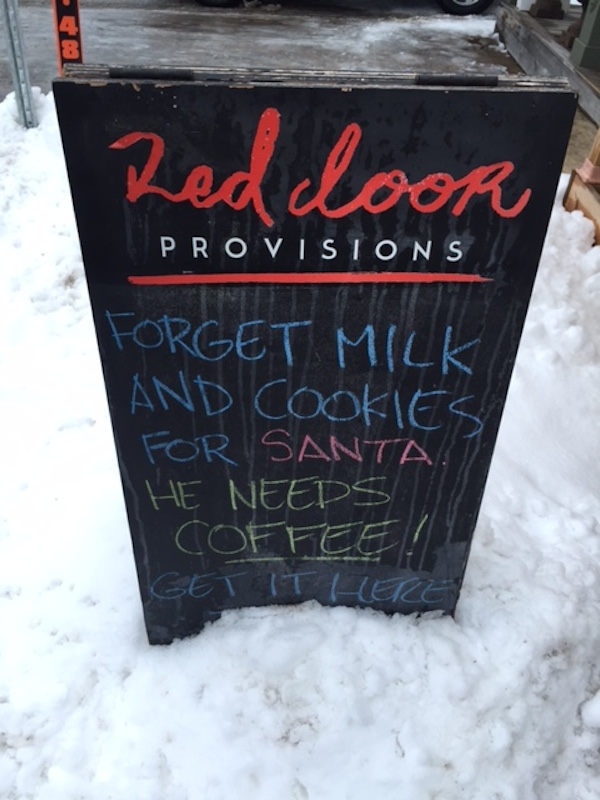 48
Red door
PROVISIONS
FORGET MILK
AND COOKIES
FOR SANTA.
HE NEEDS
COFFEE!
GET IT HERE